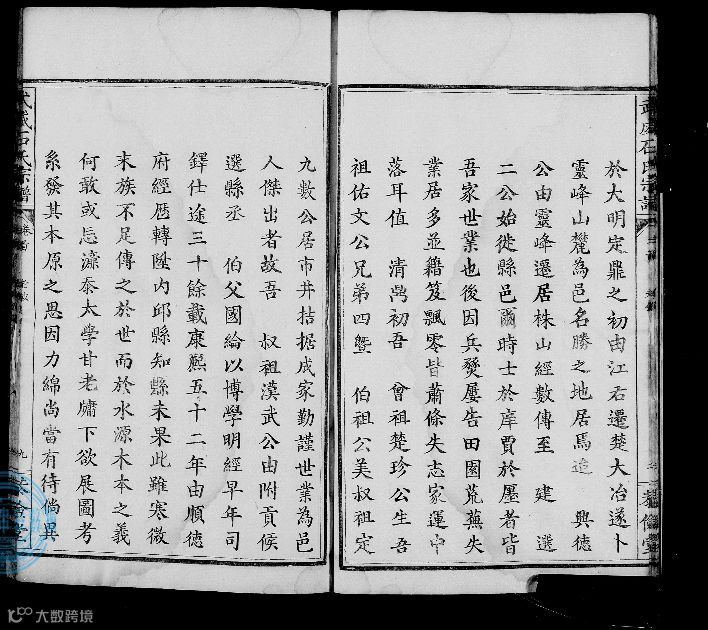 於大明定鼎之初由江右遷楚大冶遂卜
靈峰山麓為邑名勝之地居焉迨 興德
公由靈峰遷居株山經數傳至 建 選
二公始徙縣邑爾時士於庠賈於廛者皆
吾家世業也後因兵燹屢告田園荒蕪失
業居多並籍笈飄零皆蕭條失志家運中
落耳值 清鼎初吾 曾祖楚珍公生吾
祖佑文公兄弟四曁 伯祖公美叔祖定
九數公居市井拮据成家勤謹世業為邑
人傑出者故吾 叔祖漢武公由附貢候
選縣丞 伯父國綸以博學明經早年司
鐸仕途三十餘載康熈五十二年由順德
府經歴轉陞內邱縣知縣未果此雖寒微
末族不足傳之於世而於水源木本之義
何敢或忘濂忝太學甘老牖下欲展圖考
系發其本原之思因力綿尚當有待倘異
武威石氏宗譜 卷首
九
大数跨境